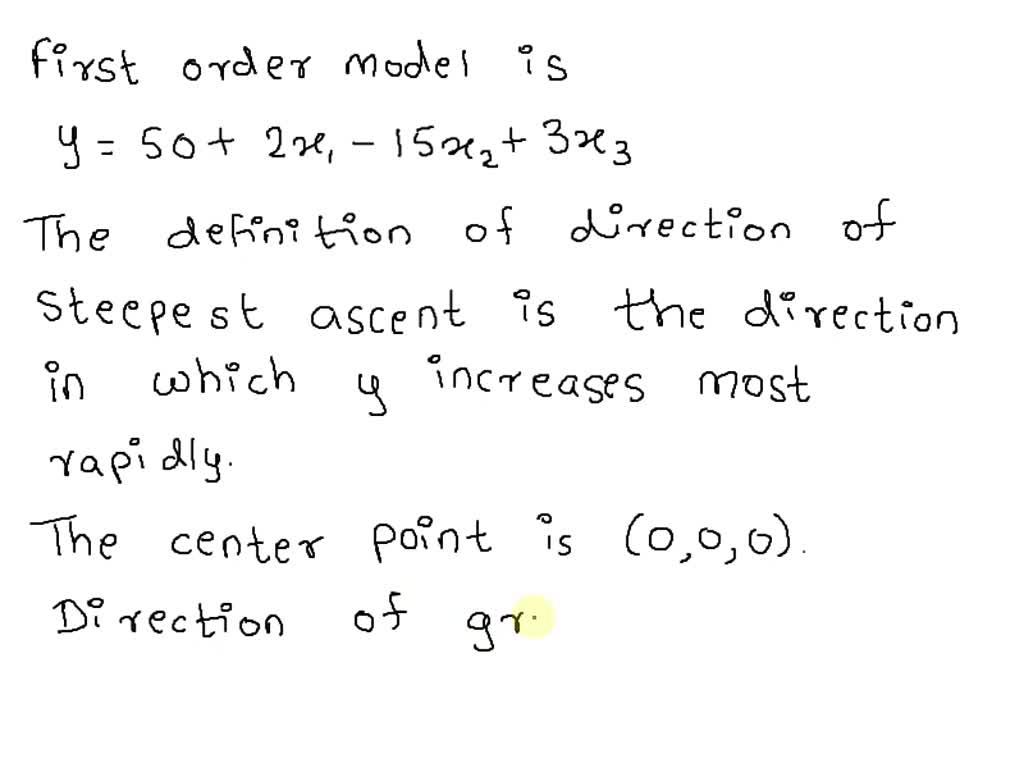 first order model is
y = 50 + 2x₁ - 15x₂ + 3x₃
The definition of direction of
steepest ascent is the direction
in which y increases most
rapidly.
The center point is (0,0,0).
Direction of gr